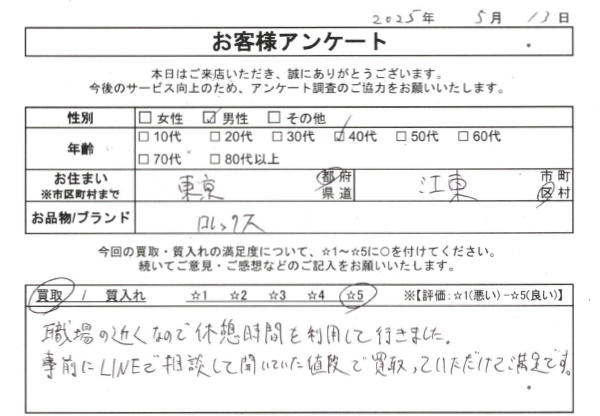 2025年 5月 13日
お客様アンケート
本日はご来店いただき、誠にありがとうございます。
今後のサービス向上のため、アンケート調査のご協力をお願いいたします。
性別 □ 女性 ☑ 男性 □ その他
年齢 □ 10代 □ 20代 □ 30代 ☑ 40代 □ 50代 □ 60代
□ 70代 □ 80代以上
お住まい ※市区町村まで 東京 都府県道 江東 市町区村
お品物/ブランド ロレックス
今回の買取・質入れの満足度について、☆1～☆5に○を付けてください。
続いてご意見・ご感想などのご記入をお願いいたします。
買取 / 質入れ ☆1 ☆2 ☆3 ☆4 ☆5 ※【評価:☆1(悪い)-☆5(良い)】
職場の近くなので休憩時間を利用して行きました。
事前にLINEで相談して聞いていた値段で買取っていただけて満足です。